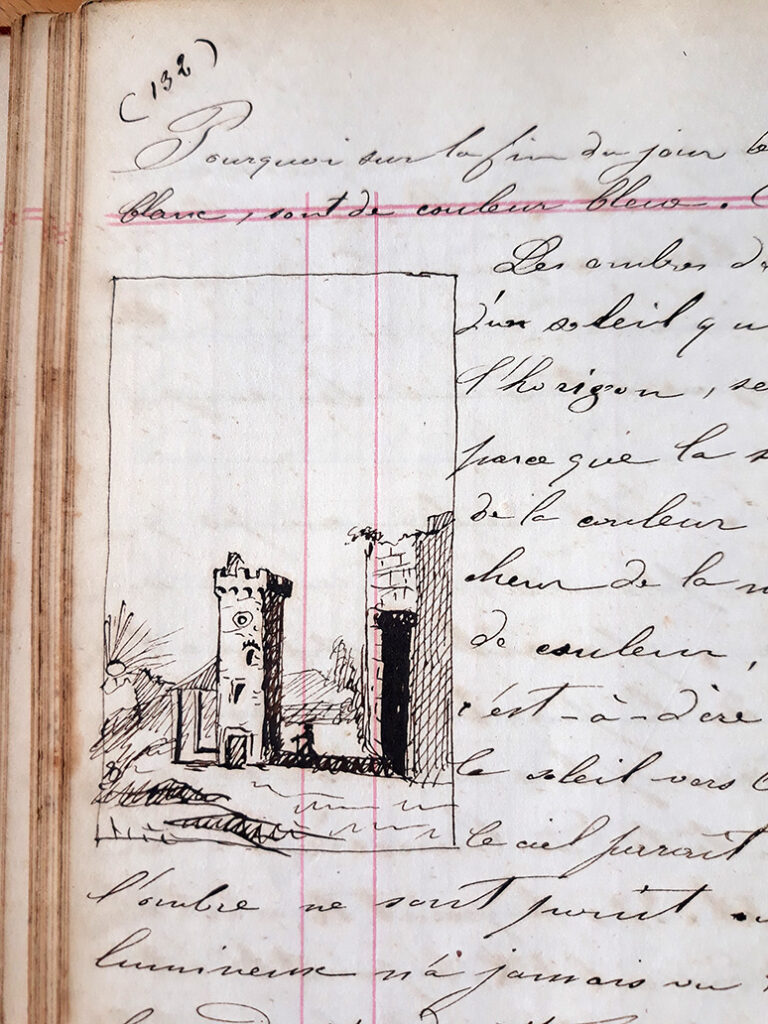 (132)
Pourquoi sur la fin du jour
blanc, sont de couleur bleue.
Les ombres
d'un soleil qu
l'horizon, se
parce que la
de la couleur
cheur de la
de couleur,
c'est-à-dire
le soleil vers
le ciel parrait
l'ombre ne sont point
lumineux n'a jamais vu